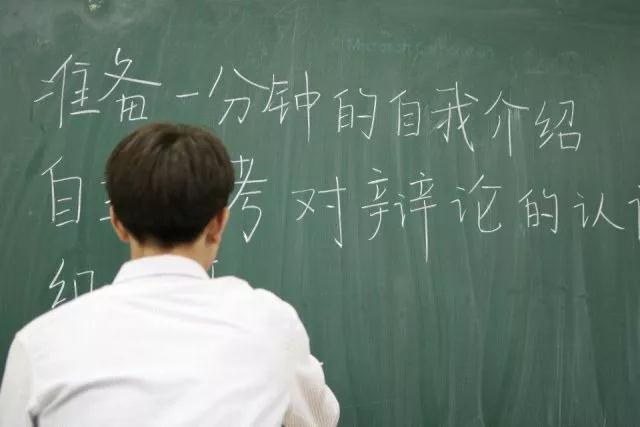 © Microsoft Corporation
准备一分钟的自我介绍
自主 考对辩论的认
组